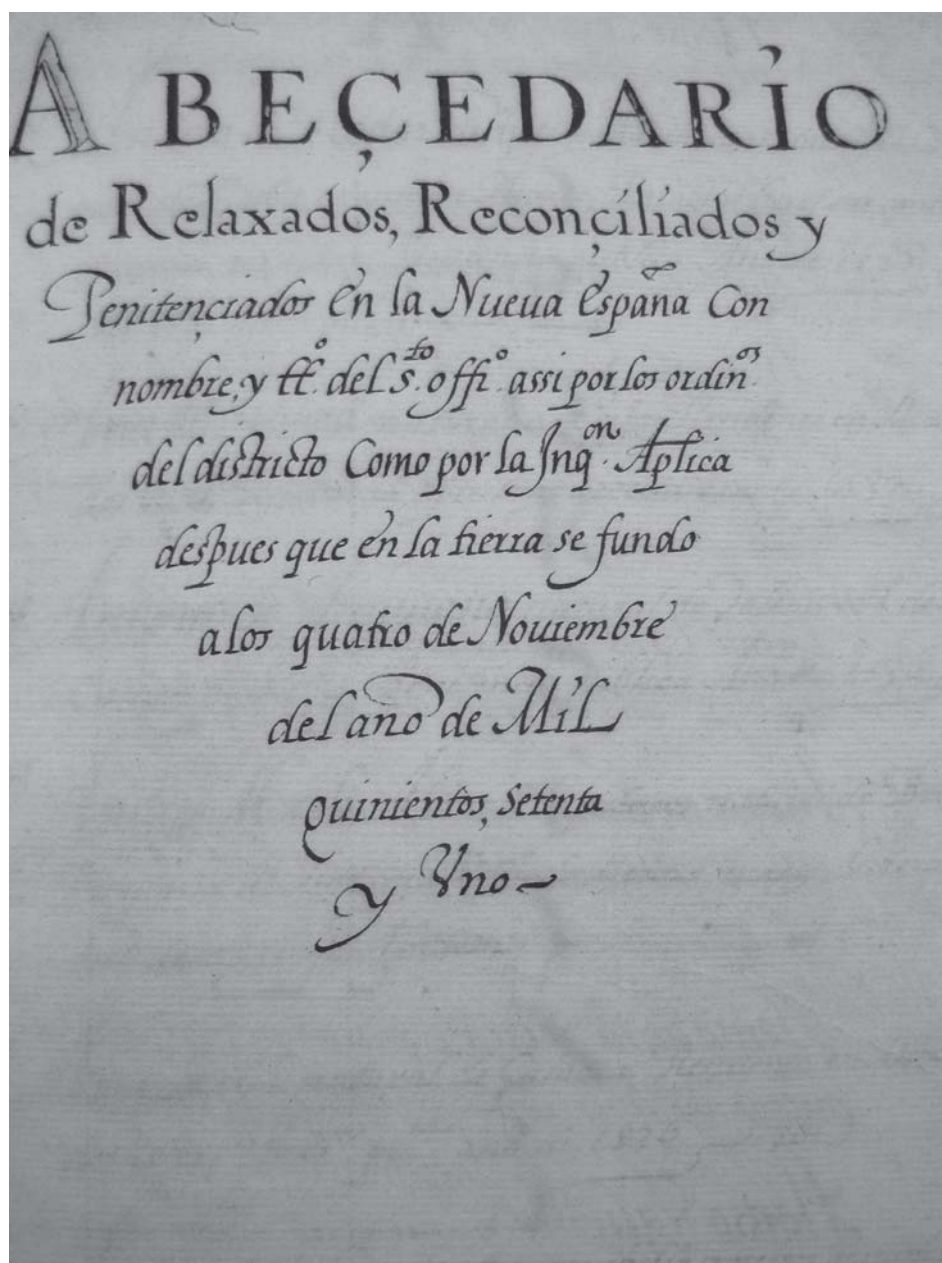 ABEÇEDARIO
de Relaxados, Reconçiliados y
Penitençiados en la Nueua España Con
nombre, y tt.º del s.to offi.º assi por los ordin.os
del districto Como por la Inq.on Aplica
despues que en la tierra se fundo
a los quatro de Nouiembre
del año de Mil
quinientos, setenta
y Vno